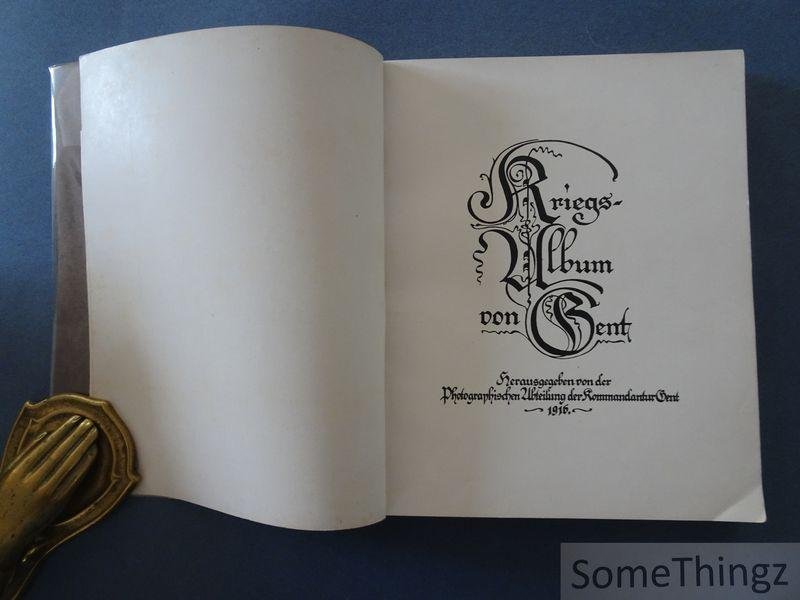 Kriegs-
Album
von Gent
Herausgegeben von der
Photographischen Abteilung der Kommandantur Gent
1916.
SomeThingz